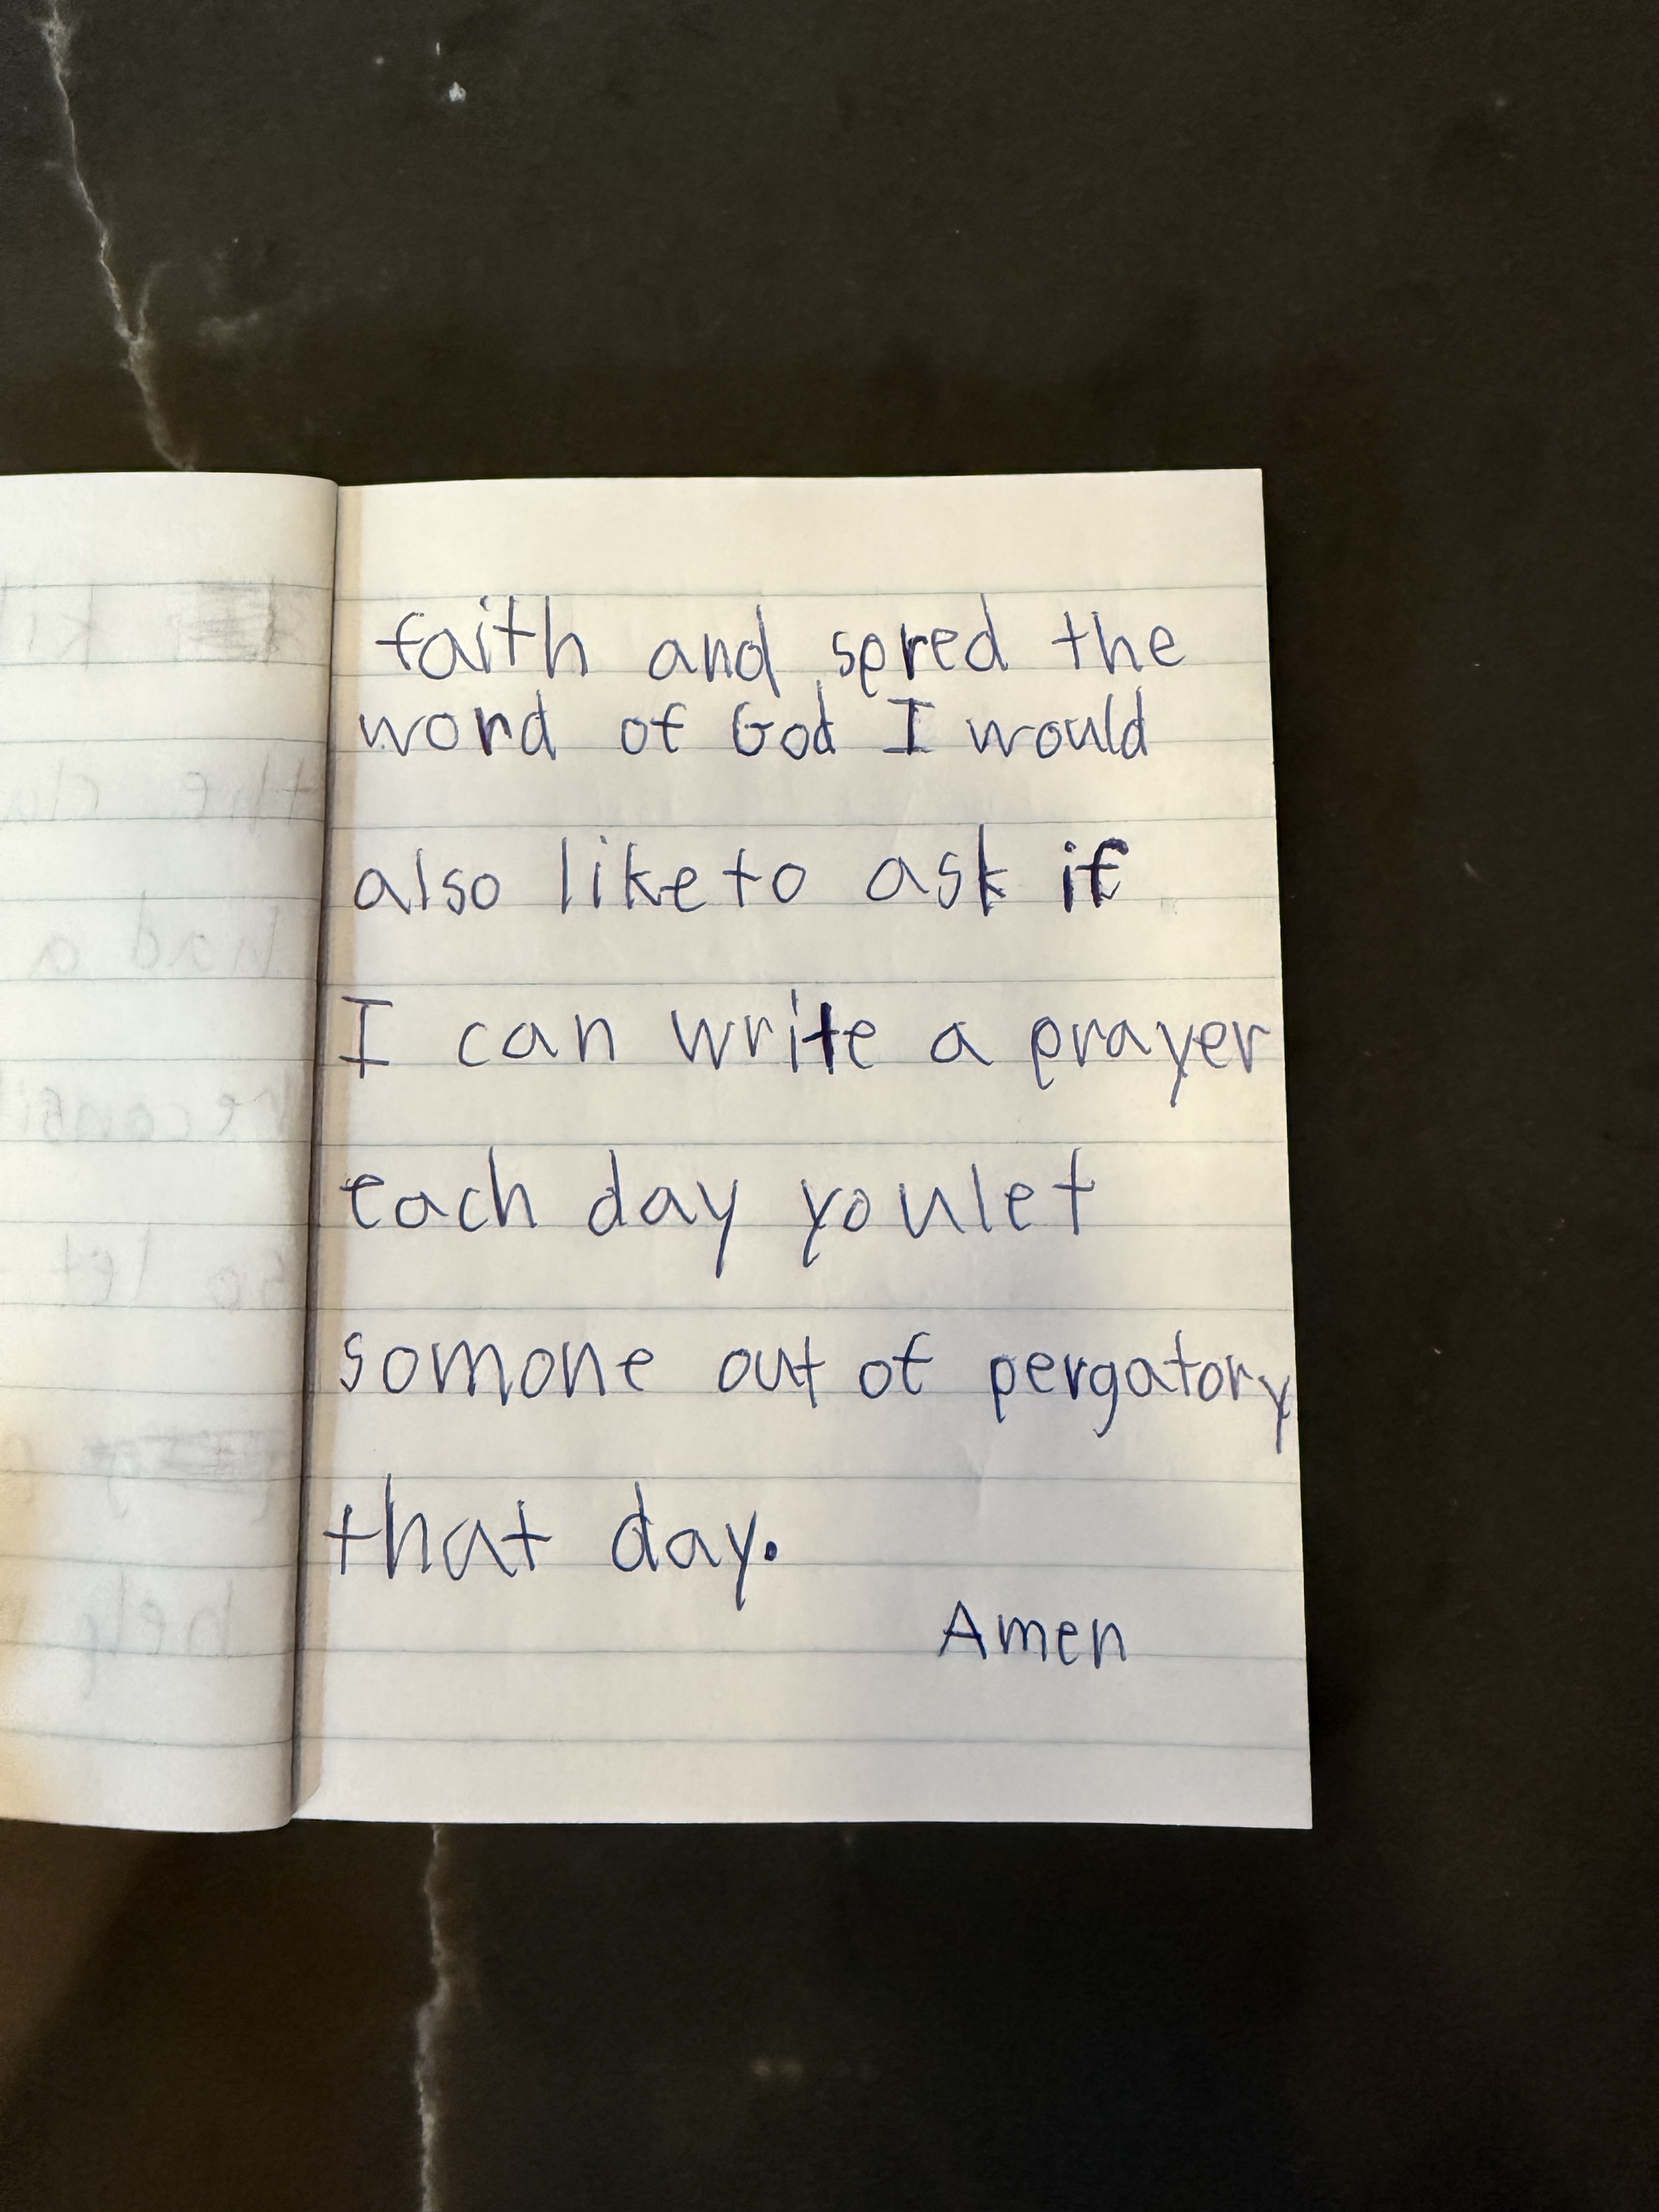 faith and spred the
word of God I would
also like to ask if
I can write a prayer
each day you let
somone out of pergatory
that day.
Amen